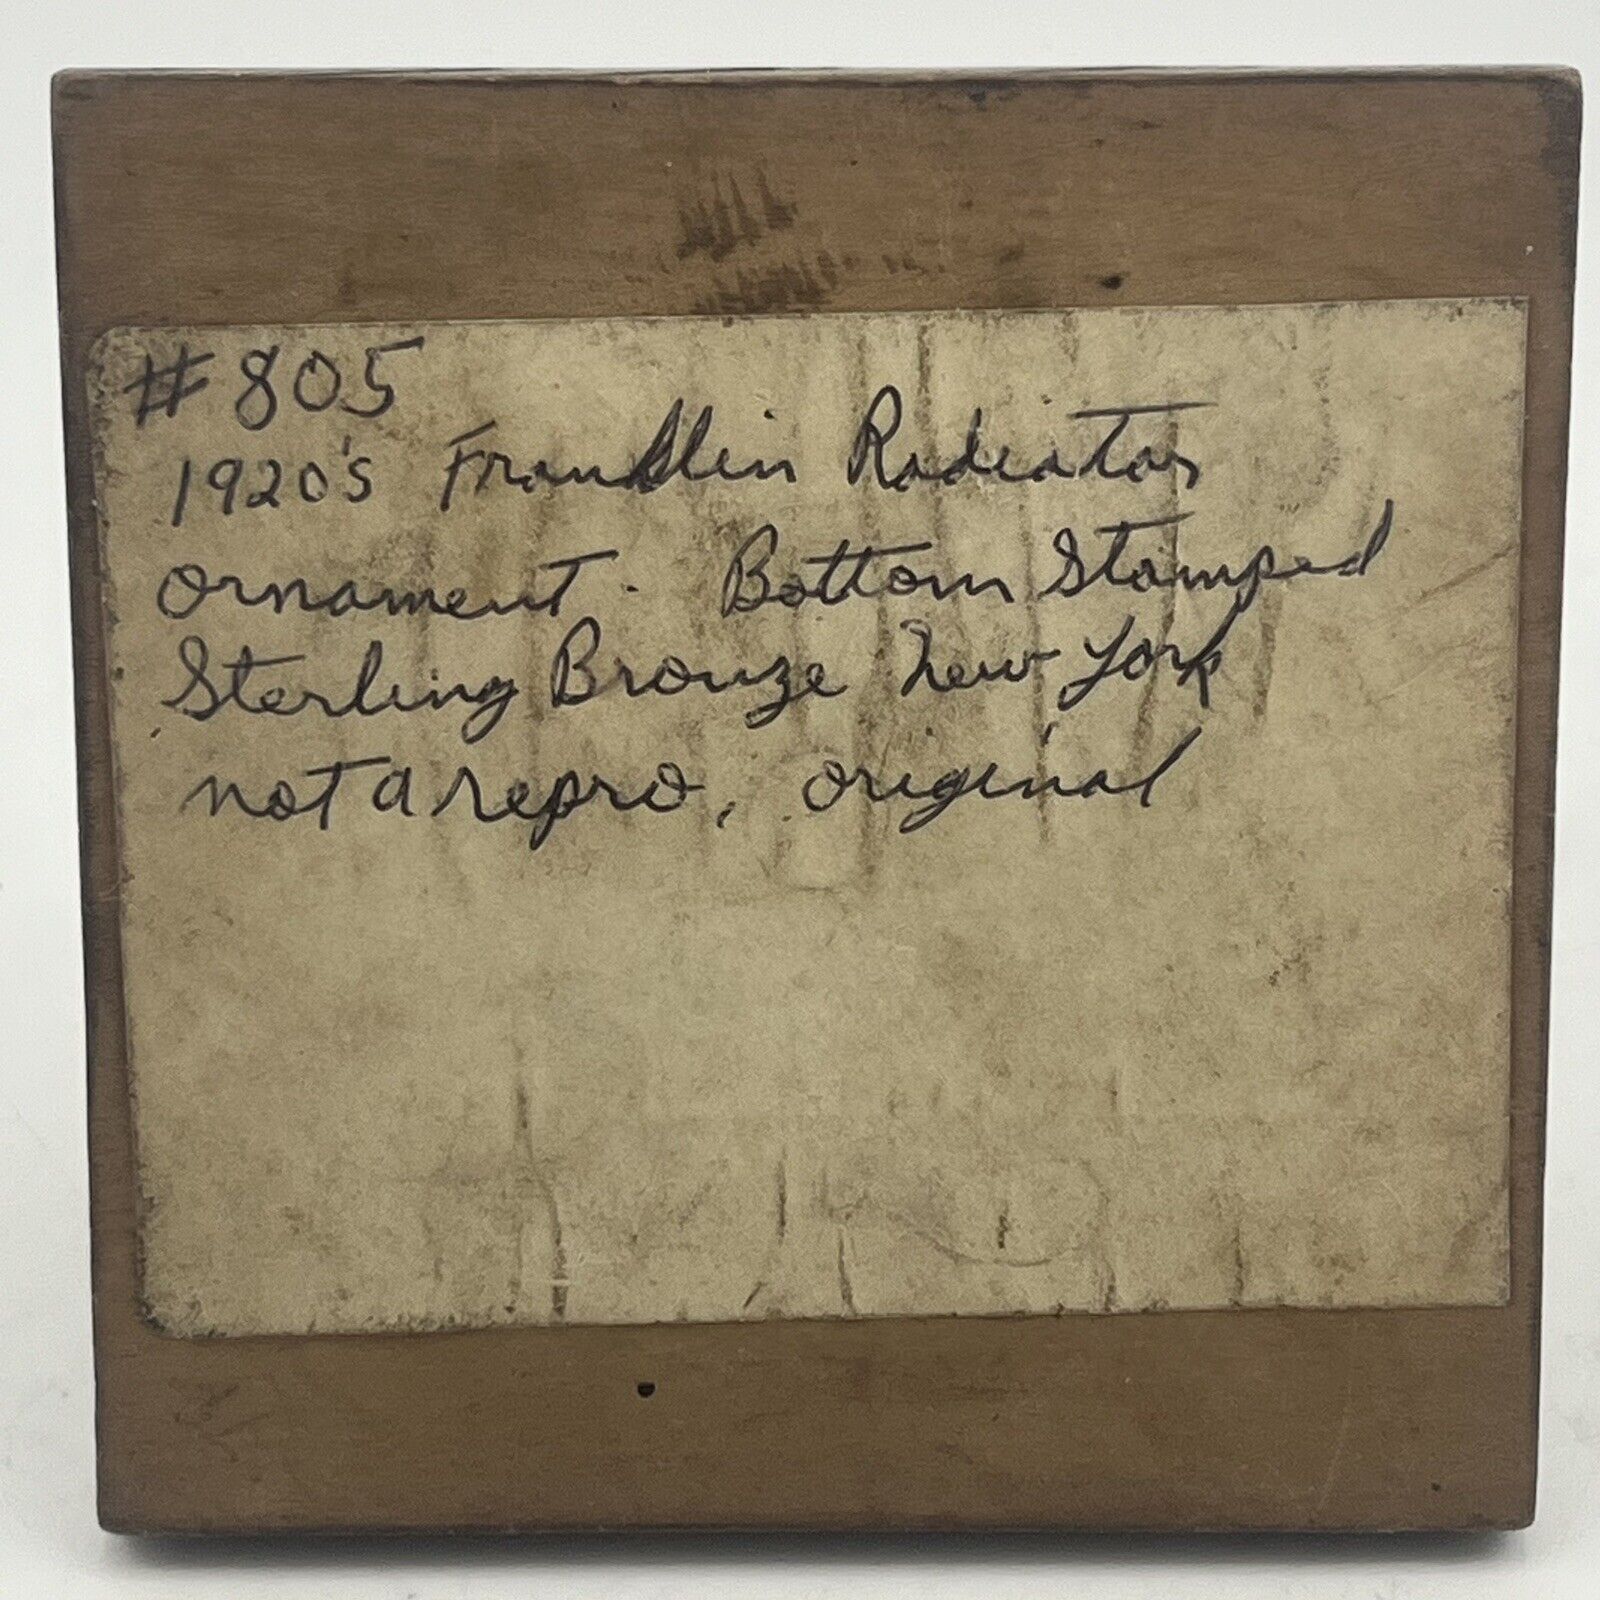 #805
1920's Franklin Radiator
ornament. Bottom Stamped
Sterling Bronze New York
not a repro, original